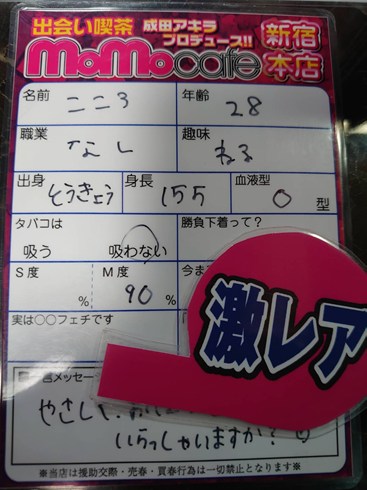 出会い喫茶 成田アキラ
プロデュース!!
MoMocafe 新宿
本店
名前 こころ 年齢 28
職業 なし 趣味 ねる
出身 とうきょう 身長 155 血液型 O 型
タバコは 勝負下着って?
吸う 吸わない
S度 % M度 90 % 今ま
激レア
実は〇〇フェチです
言メッセー
やさしい
いらっしゃいますか?
※当店は援助交際・売春・買春行為は一切禁止となります※